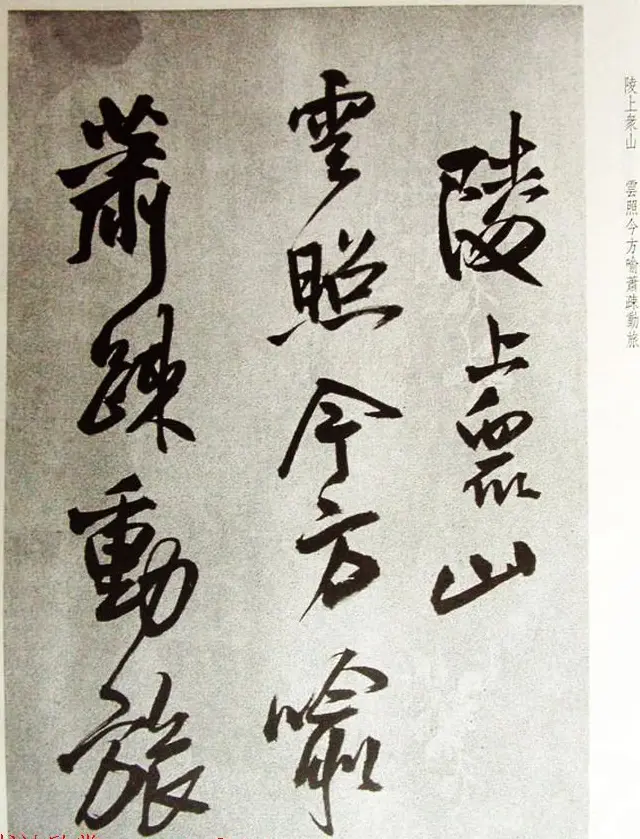 陵上眾山
雲照今方喻
蕭疎動旅
陵上眾山　雲照今方喻蕭疎動旅